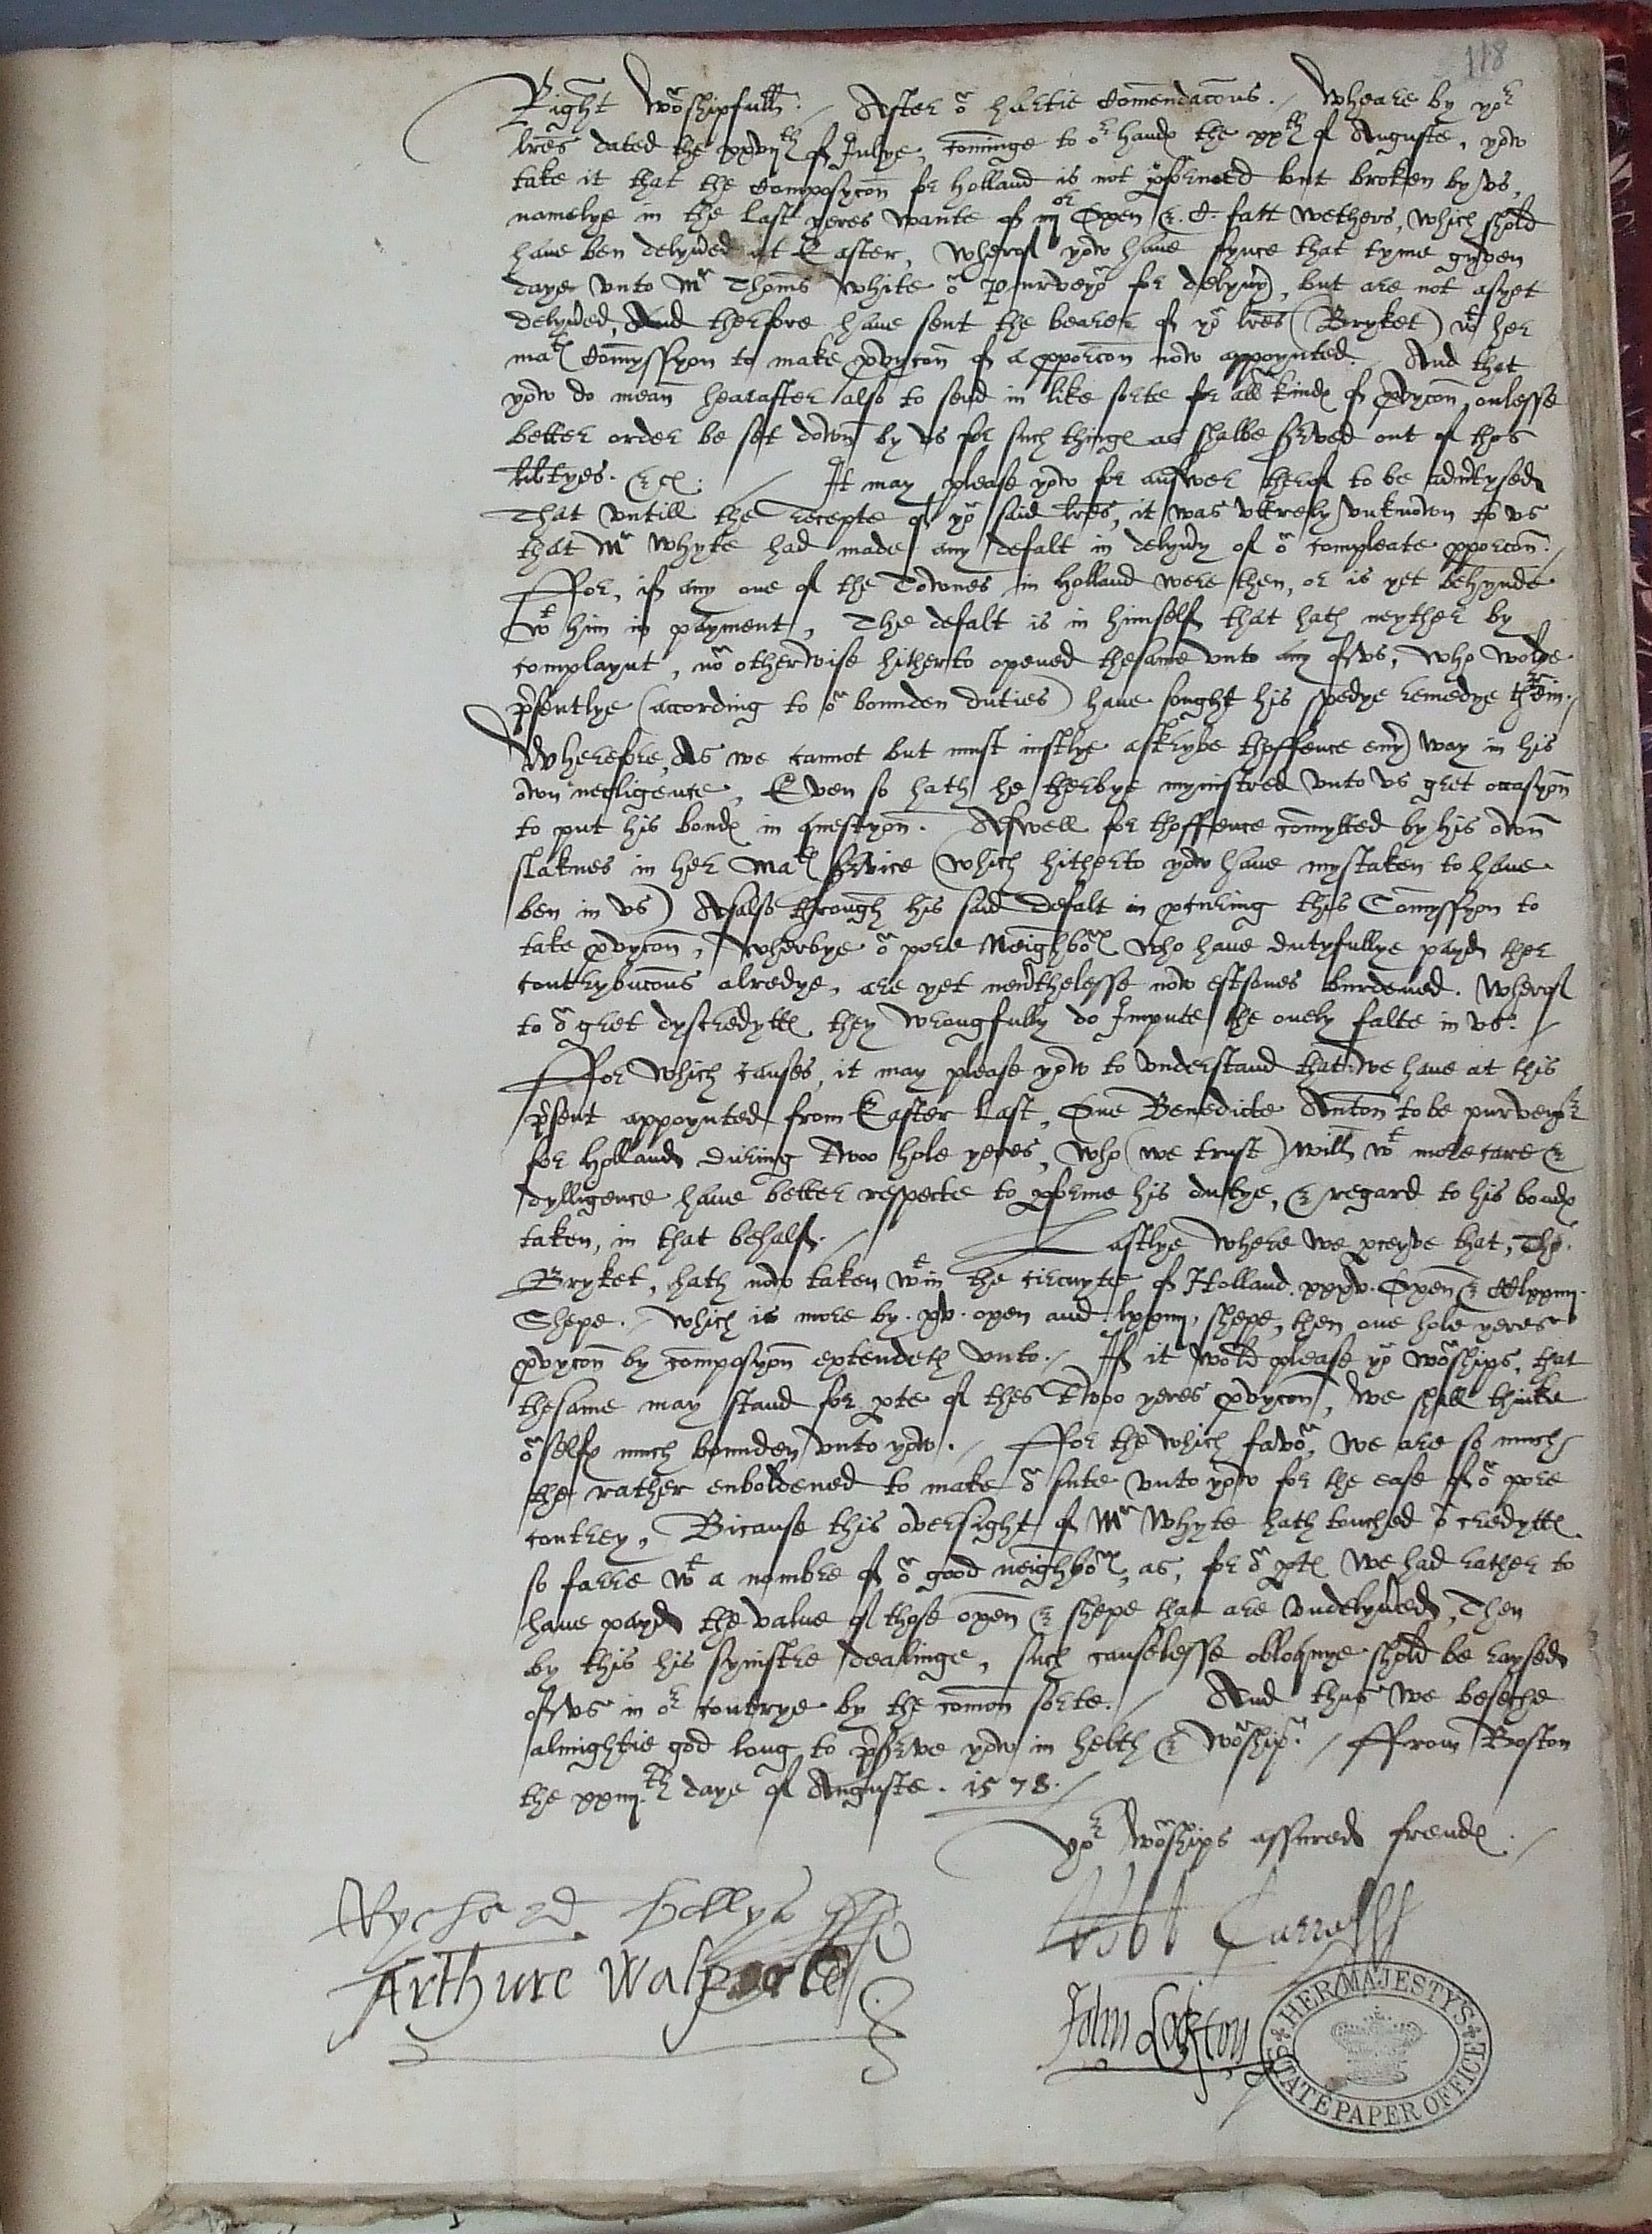 118
Right wo͂shipfull. / After o͂ hartie Com̄endac͂ons. / Wheare by yor
lr̄es dated the xxvijth of Julye, com̄inge to or hand℮ the xxth of Auguste, yow
take it that the Composyco͂n for Holland is not p̱formed but broken by vs,
namelye in the last yeres wante of iiijor Oxen &. C. fatt wethers, which shold
have ben delyv͂ed at Easter, wherof yow have synce that tyme gyven
daye vnto Mr Thom̄s White o͂ Purveyo͂ for delyv͂y, but are not as yet
delyv͂ed, And therfore have sent the bearer of yo͂ lr̄es (Bryket) wt her
mat℮ Com̄yssyon to make p̱vyco͂n of a p̱porco͂n now appoynted. And that
yow do mean hearafter also to send in like sorte for all kind℮ of p̱vyco͂n, onlesse
better order be set down by vs for such thing℮ as shalbe s͂ved out of thes
lib͂tyes. &c. / It may please yow for answer therof to be adv͂tysed
That vntill the recepte of yo͂ said lr̄es, it was vtterly vnknown to vs
that Mr Whyte had made any defalt in delyv͂y of o͂ compleate p̱porco͂n. /
Ffor, if any one of the Townes in Holland were then, or is yet behynde
wt him in payment, The defalt is in himself that hath neyther by
complaynt, no͂ otherwise hitherto opened thesame vnto any of vs, who wolde
p͂sentlye (according to o͂ bounden duties) have sought his spedye remedye th͂in. /
Wherefore, As we cannot but must iustlye ascrybe thoffence eu͂y way in his
own negligence, Even so hath he therbye mynistred vnto vs gret occasyon
to put his bond℮ in questyon. Aswell for thoffence com̄ytted by his own
slaknes in her Mat℮ s͂vice (which hitherto yow have mystaken to have
ben in vs) As also through his said Defalt in p̱curing this Com̄yssyon to
take p̱vyco͂n, Wherbye o͂ pore Neighbo͂℮ who have dutyfullye payd ther
contrybuc͂ons alredye, are yet neu͂thelesse now eftsones burdened. Wherof
to o͂ gret dyscredytt℮ they wrongfully do Impute the onely falte in vs. /
Ffor which causes, it may please yow to vnderstand that we have at this
p͂sent appoynted from Easter last, One Benedicte Anton to be purveyor
for Holland during Twoo hole yeres, who (we trust) will wt more care &
dylligence have better respecte to p̱forme his dutye, & regard to his bond℮
taken, in that behalf. / Lastlye where we p̱ceyve that, Tho.
Bryket, hath now taken wtin the circuyte of Holland xxxv. Oxen & CClxxiiij.
Shepe. / which is more by. xv. oxen and lxxiiij. shepe, then one hole yeres
p̱vyco͂n by composyon extendeth vnto. / If it wold please yo͂ wo͂ships, that
thesame may stand for p̱te of thes Twoo yeres p̱vyco͂n, we shall thinke
o͂ self℮ much bounden vnto yow. / Ffor the which favo͂, we are so much
the rather enboldened to make o͂ sute vnto yow for the ease of o͂ pore
contrey, Bicause this oversight of Mr Whyte hath touched o͂ credytt℮
so farre wt a nombre of o͂ good neighbo͂℮, as, for o͂ p̱t℮ we had rather to
have payd the value of those oxen & shepe that are vndelyv͂ed, Then
by this his synistre dealinge, such causelesse obloquye shold be raysed
of vs in or contrye by the com̄on sorte. / And thus we beseche
almightie god long to p͂s͂ve yow in helth & wo͂ship. / Ffrom Boston
the xxiiijth daye of Auguste. 1578. /
yor wo͂ships assured frend℮. /
Rychard
Robt Carr
Arthure Walpoole
John Lockton
HER MAJESTY'S STATE PAPER OFFICE